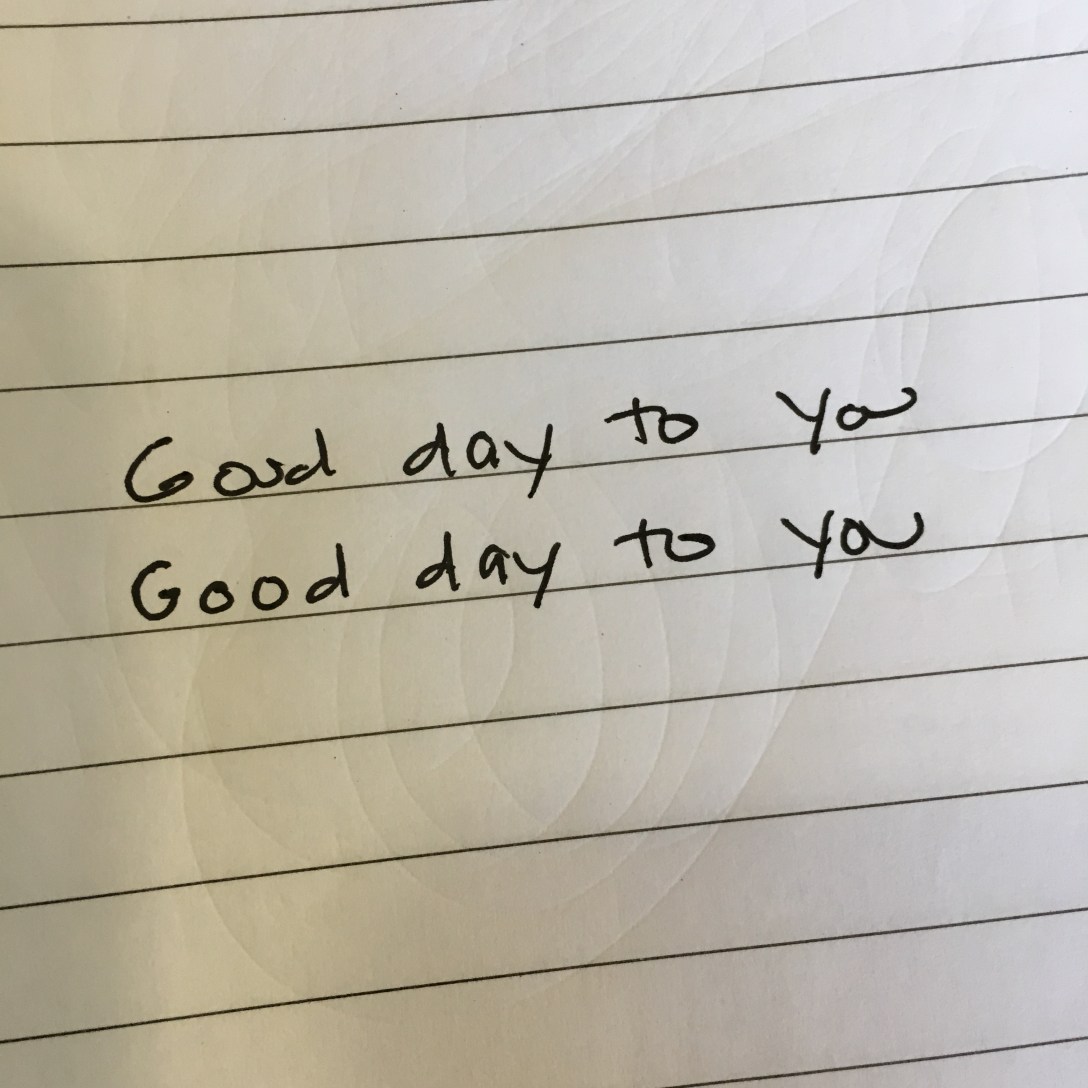 Good day to you
Good day to you